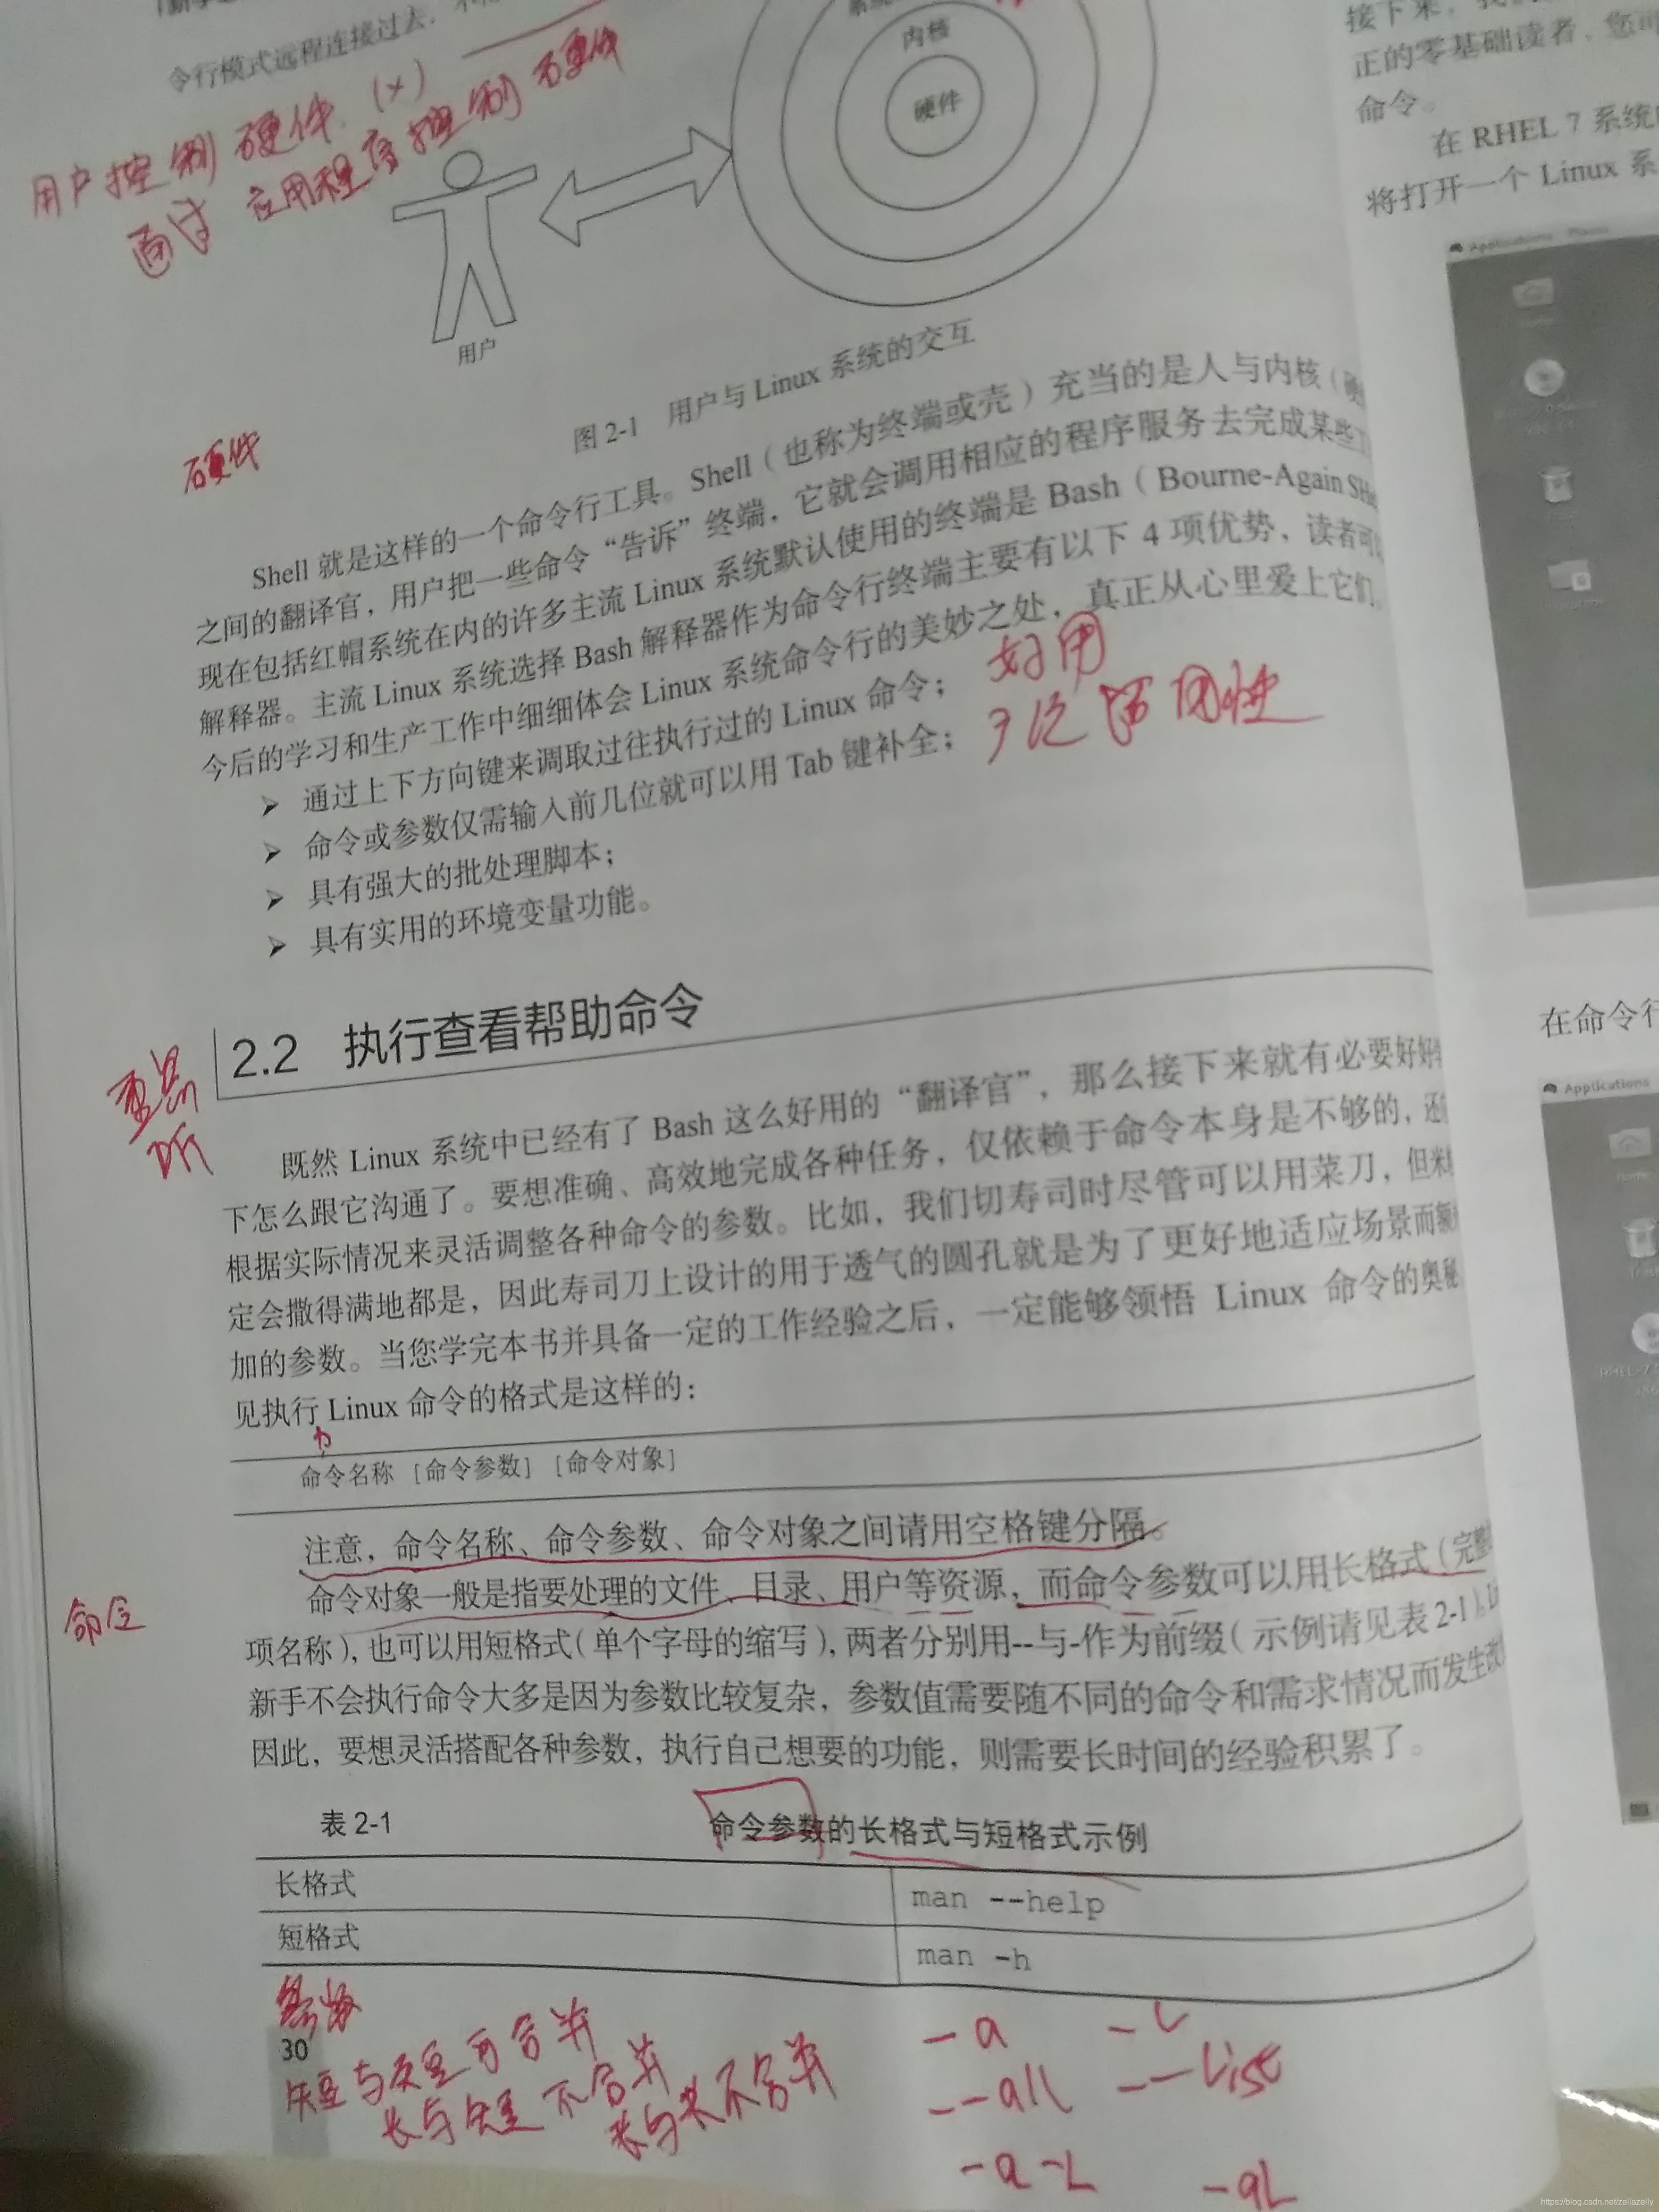 令行模式远程连接过去，
用户控制硬件.(x)
通过 应用程序控制 硬件
内核
硬件
用户
图 2-1 用户与 Linux 系统的交互
硬件
Shell 就是这样的一个命令行工具。Shell（也称为终端或壳）充当的是人与内核（硬
之间的翻译官，用户把一些命令“告诉”终端，它就会调用相应的程序服务去完成某些
现在包括红帽系统在内的许多主流 Linux 系统默认使用的终端是 Bash（Bourne-Again SHe
解释器。主流 Linux 系统选择 Bash 解释器作为命令行终端主要有以下 4 项优势，读者可
今后的学习和生产工作中细细体会 Linux 系统命令行的美妙之处，真正从心里爱上它们。
➢ 通过上下方向键来调取过往执行过的 Linux 命令；
➢ 命令或参数仅需输入前几位就可以用 Tab 键补全；
➢ 具有强大的批处理脚本；
➢ 具有实用的环境变量功能。
好用
2.2 执行查看帮助命令
重点
听
既然 Linux 系统中已经有了 Bash 这么好用的“翻译官”，那么接下来就有必要好好
下怎么跟它沟通了。要想准确、高效地完成各种任务，仅依赖于命令本身是不够的，还
根据实际情况来灵活调整各种命令的参数。比如，我们切寿司时尽管可以用菜刀，但米
定会撒得满地都是，因此寿司刀上设计的用于透气的圆孔就是为了更好地适应场景而额
加的参数。当您学完本书并具备一定的工作经验之后，一定能够领悟 Linux 命令的奥秘
见执行 Linux 命令的格式是这样的：
命令名称 [命令参数] [命令对象]
注意，命令名称、命令参数、命令对象之间请用空格键分隔。
命令对象一般是指要处理的文件、目录、用户等资源，而命令参数可以用长格式（完整
命令
项名称），也可以用短格式（单个字母的缩写），两者分别用--与-作为前缀（示例请见表 2-1）。Li
新手不会执行命令大多是因为参数比较复杂，参数值需要随不同的命令和需求情况而发生改
因此，要想灵活搭配各种参数，执行自己想要的功能，则需要长时间的经验积累了。
表 2-1 命令参数的长格式与短格式示例
长格式 man --help
短格式 man -h
参数
30
短与短可合并
长与短 不合并
长与长不合并
-a -l
--all --list
-a -L -aL
接下来，我
正的零基础读者，您可
命令。
在 RHEL 7 系统
将打开一个 Linux 系
Applications Places
在命令行
Applications
https://blog.csdn.net/zellazelly